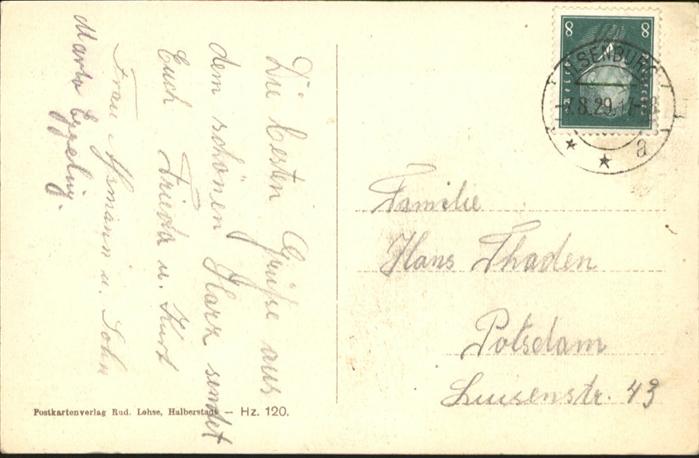 Die besten Grüße aus
dem schönen Harz sendet
Euch Frieda u. Kurt
Frau Assmann u. Sohn
Marta Eggeling.
8 8
ILSENBURG
8.29.17-18
* * a
Familie
Hans Thaden
Potsdam
Luisenstr. 43
Postkartenverlag Rud. Lohse, Halberstadt — Hz. 120.